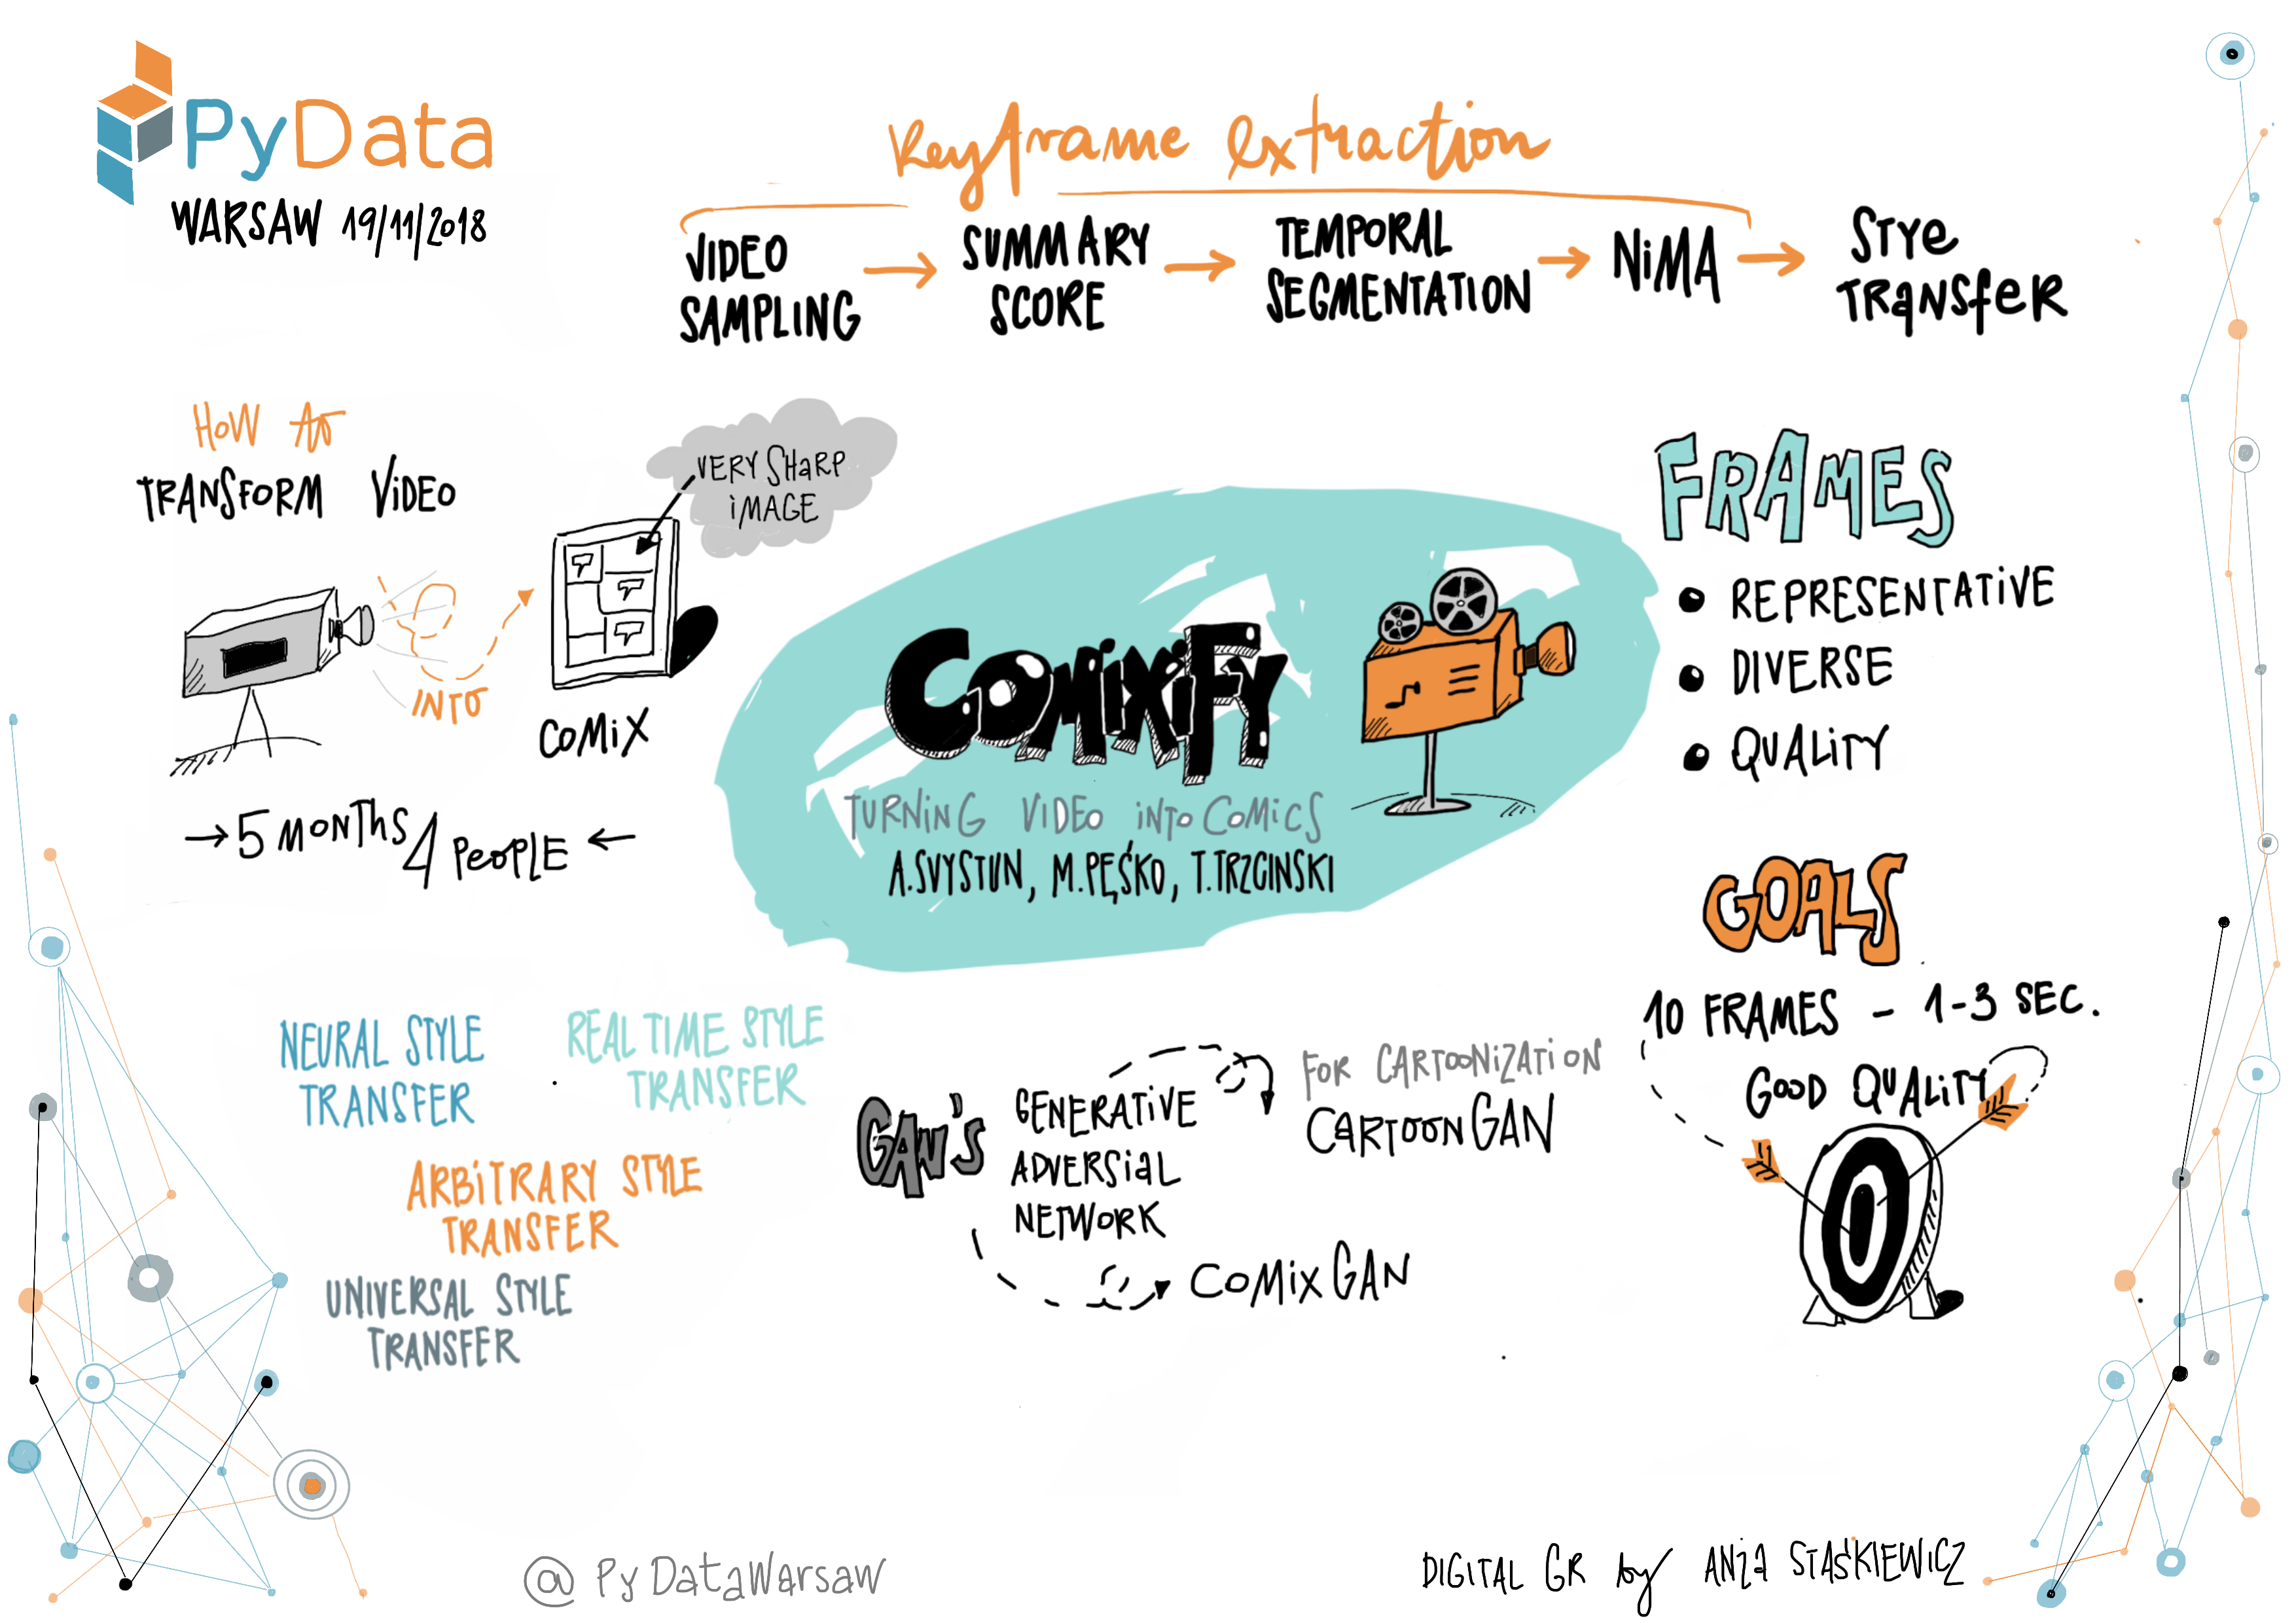 PyData
WARSAW 19/11/2018
Keyframe extraction
VIDEO
SAMPLING
SUMMARY
SCORE
TEMPORAL
SEGMENTATION
NiMA
STYe
TRANSfeR
HOW TO
TRANSFORM VIDEO
INTO
COMIX
VERY SHARP
IMAGE
5 MONTHS 4 PEOPLE
COMIXIFY
TURNING VIDEO INTO COMICS
A.SVYSTUN, M.PĘŚKO, T.TRZCINSKI
FRAMES
• REPRESENTATIVE
• DIVERSE
• QUALITY
GOALS
10 FRAMES - 1-3 SEC.
GOOD QUALITY
NEURAL STYLE
TRANSFER
REAL TIME STYLE
TRANSFER
ARBITRARY STYLE
TRANSFER
UNIVERSAL STYLE
TRANSFER
GAN'S
GENERATIVE
ADVERSIAL
NETWORK
FOR CARTOONIZATION
CARTOON GAN
COMIX GAN
@ PyDataWarsaw
DIGITAL GR by ANIA STAŚKIEWICZ